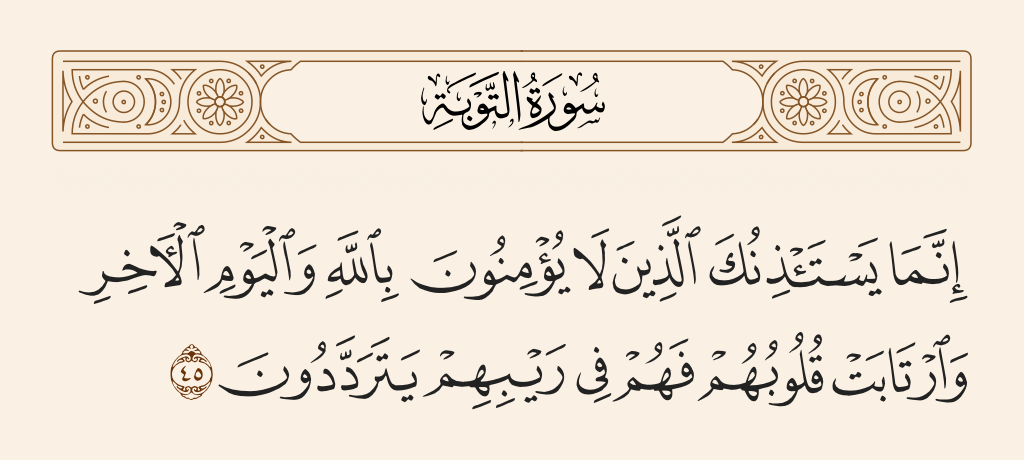 سُورَةُ التَّوْبَةِ
إِنَّمَا يَسْتَـْٔذِنُكَ ٱلَّذِينَ لَا يُؤْمِنُونَ بِٱللَّهِ وَٱلْيَوْمِ ٱلْـَٔاخِرِ
وَٱرْتَابَتْ قُلُوبُهُمْ فَهُمْ فِى رَيْبِهِمْ يَتَرَدَّدُونَ ٤٥